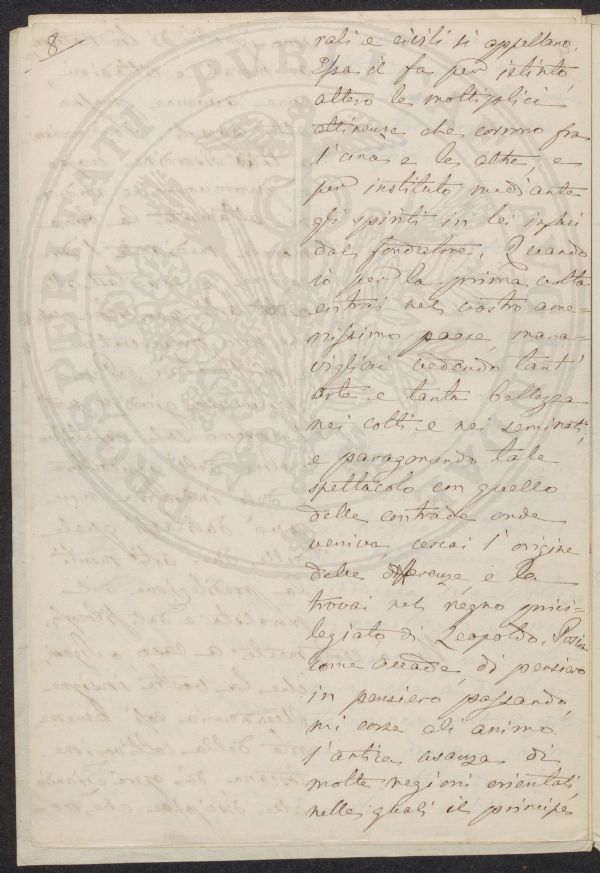 8
rali e civili si appellano.
Essa il fa per istinto,
atteso le moltiplici
attinenze che corrono fra
l'una e le altre, e
per instituto mediante
gli spiriti in lei infusi
dal fondatore. Quando
io per la prima volta
entrai nel vostro ame-
nissimo paese, mara-
vigliai vedendo tant'
arte e tanta bellezza
nei colti e nei seminati;
e paragonando tale
spettacolo con quello
delle contrade onde
veniva, cercai l'origine
della differenza, e la
trovai nel regno privi-
legiato di Leopoldo. Poscia
come accade, di pensiero
in pensiero passando,
mi corse all'animo
l'antica usanza di
molte regioni orientali,
nelle quali il principe
PROSPERITATI PUBLICAE